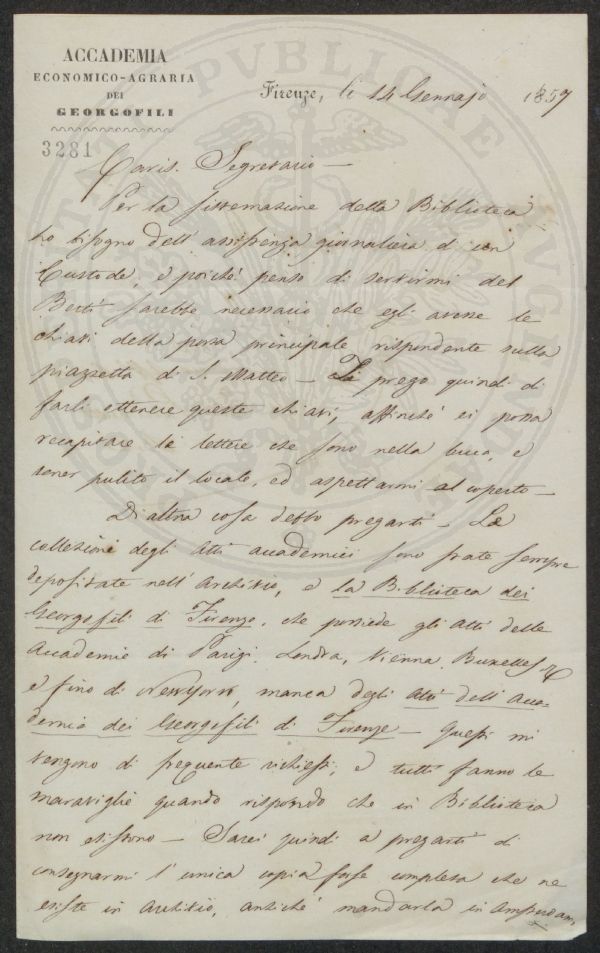 ACCADEMIA
ECONOMICO-AGRARIA
DEI
GEORGOFILI
3281
Firenze, le 14 Gennajo 1857
Caris. Segretario —
Per la sistemazione della Biblioteca
ho bisogno dell'assistenza giornaliera d'un
Custode, e poiché penso di servirmi del
Berti sarebbe necessario che egli avesse le
chiavi della porta principale rispondente sulla
piazzetta di S. Matteo — Ti prego quindi di
farli ottenere queste chiavi, affinché ei possa
recapitare le lettere che sono nella buca, e
tener pulito il locale, ed aspettarmi al coperto —
Di altra cosa debbo pregarti — Le
collezioni degli Atti accademici sono state sempre
depositate nell'Archivio, e la Biblioteca dei
Georgofili di Firenze, che possiede gli Atti delle
Accademie di Parigi, Londra, Vienna, Buxelles
e fino di NewYork, manca degli Atti dell'Acca-
demia dei Georgofili di Firenze — Questi mi
vengono di frequente richiesti, e tutti fanno le
maraviglie quando rispondo che in Biblioteca
non esistono — Sarei quindi a pregarti di
consegnarmi l'unica copia forse completa che ne
esiste in Archivio, antiché mandarla in